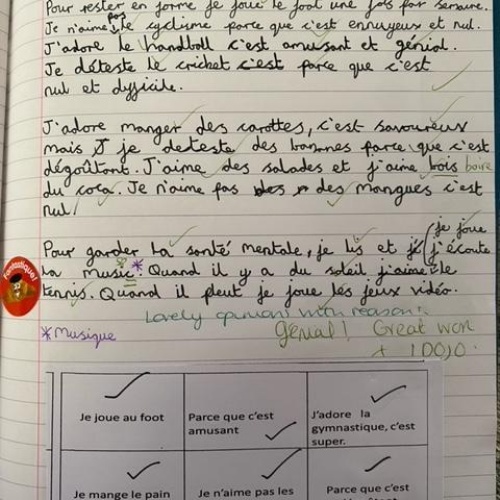 Pour rester en forme je joue le foot une fois par semaine.
Je n'aime pas le cyclisme parce que c'est ennuyeux et nul.
J'adore le handball c'est amusant et génial.
Je déteste le cricket c'est parce que c'est
nul et dificile.
J'adore manger des carottes, c'est savoureux
mais je deteste des bananes parce que c'est
dégoûtant. J'aime des salades et j'aime bois boire
du coca. Je n'aime pas des mangues c'est
nul!
Pour garder la santé mentale, je lis et je je joue
j'écoute
la music*. Quand il y a du soleil j'aime le
tennis. Quand il pleut je joue les jeux vidéo.
Fantastique!
Lovely opinions with reasons.
*Musique
Génial! Great work
+ 100%.
Je joue au foot
Parce que c'est
amusant
J'adore la
gymnastique, c'est
super.
Je mange le pain
Je n'aime pas les
Parce que c'est